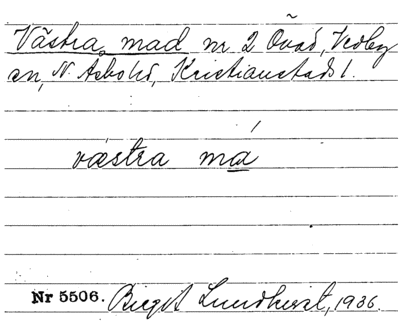 Västra mad nr 2 Övad, Vedby
sn, N. Åsbo hd, Kristianstads l.
væstra má
Nr 5506. Birgit Lundkvist, 1936.